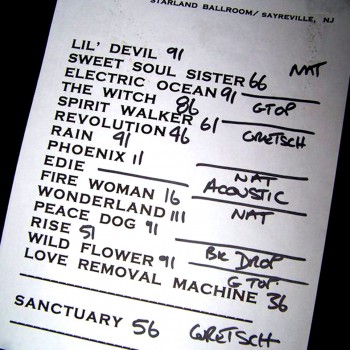 STARLAND BALLROOM/ SAYREVILLE, NJ
LIL' DEVIL 91
SWEET SOUL SISTER 66 NAT
ELECTRIC OCEAN 91
THE WITCH 86 GTOP
SPIRIT WALKER 61
REVOLUTION 46 GRETSCH
RAIN 91
PHOENIX 11 NAT
EDIE ACOUSTIC
FIRE WOMAN 16 NAT
WONDERLAND 111
PEACE DOG 91
RISE 51 BK DROP
WILD FLOWER 91 G TOP
LOVE REMOVAL MACHINE 36
SANCTUARY 56 GRETSCH